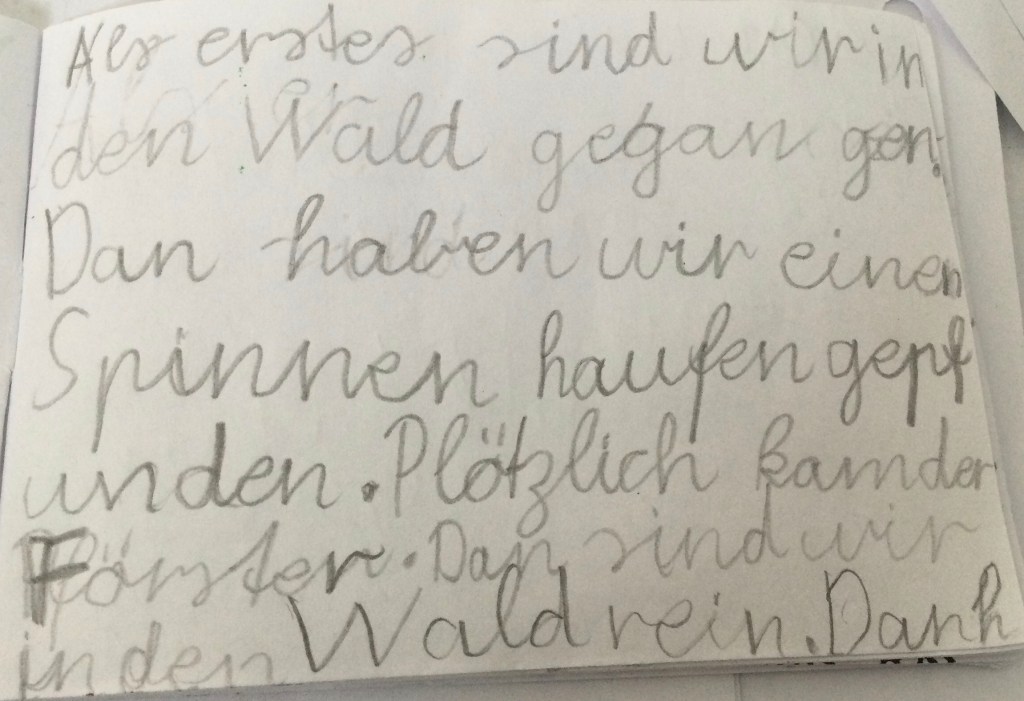 Als erstes sind wir in
den Wald gegan gen.
Dan haben wir einen
Spinnen haufen gepf
unden. Plötzlich kamder
Förster. Dan sind wir
in den Wald rein. Danh